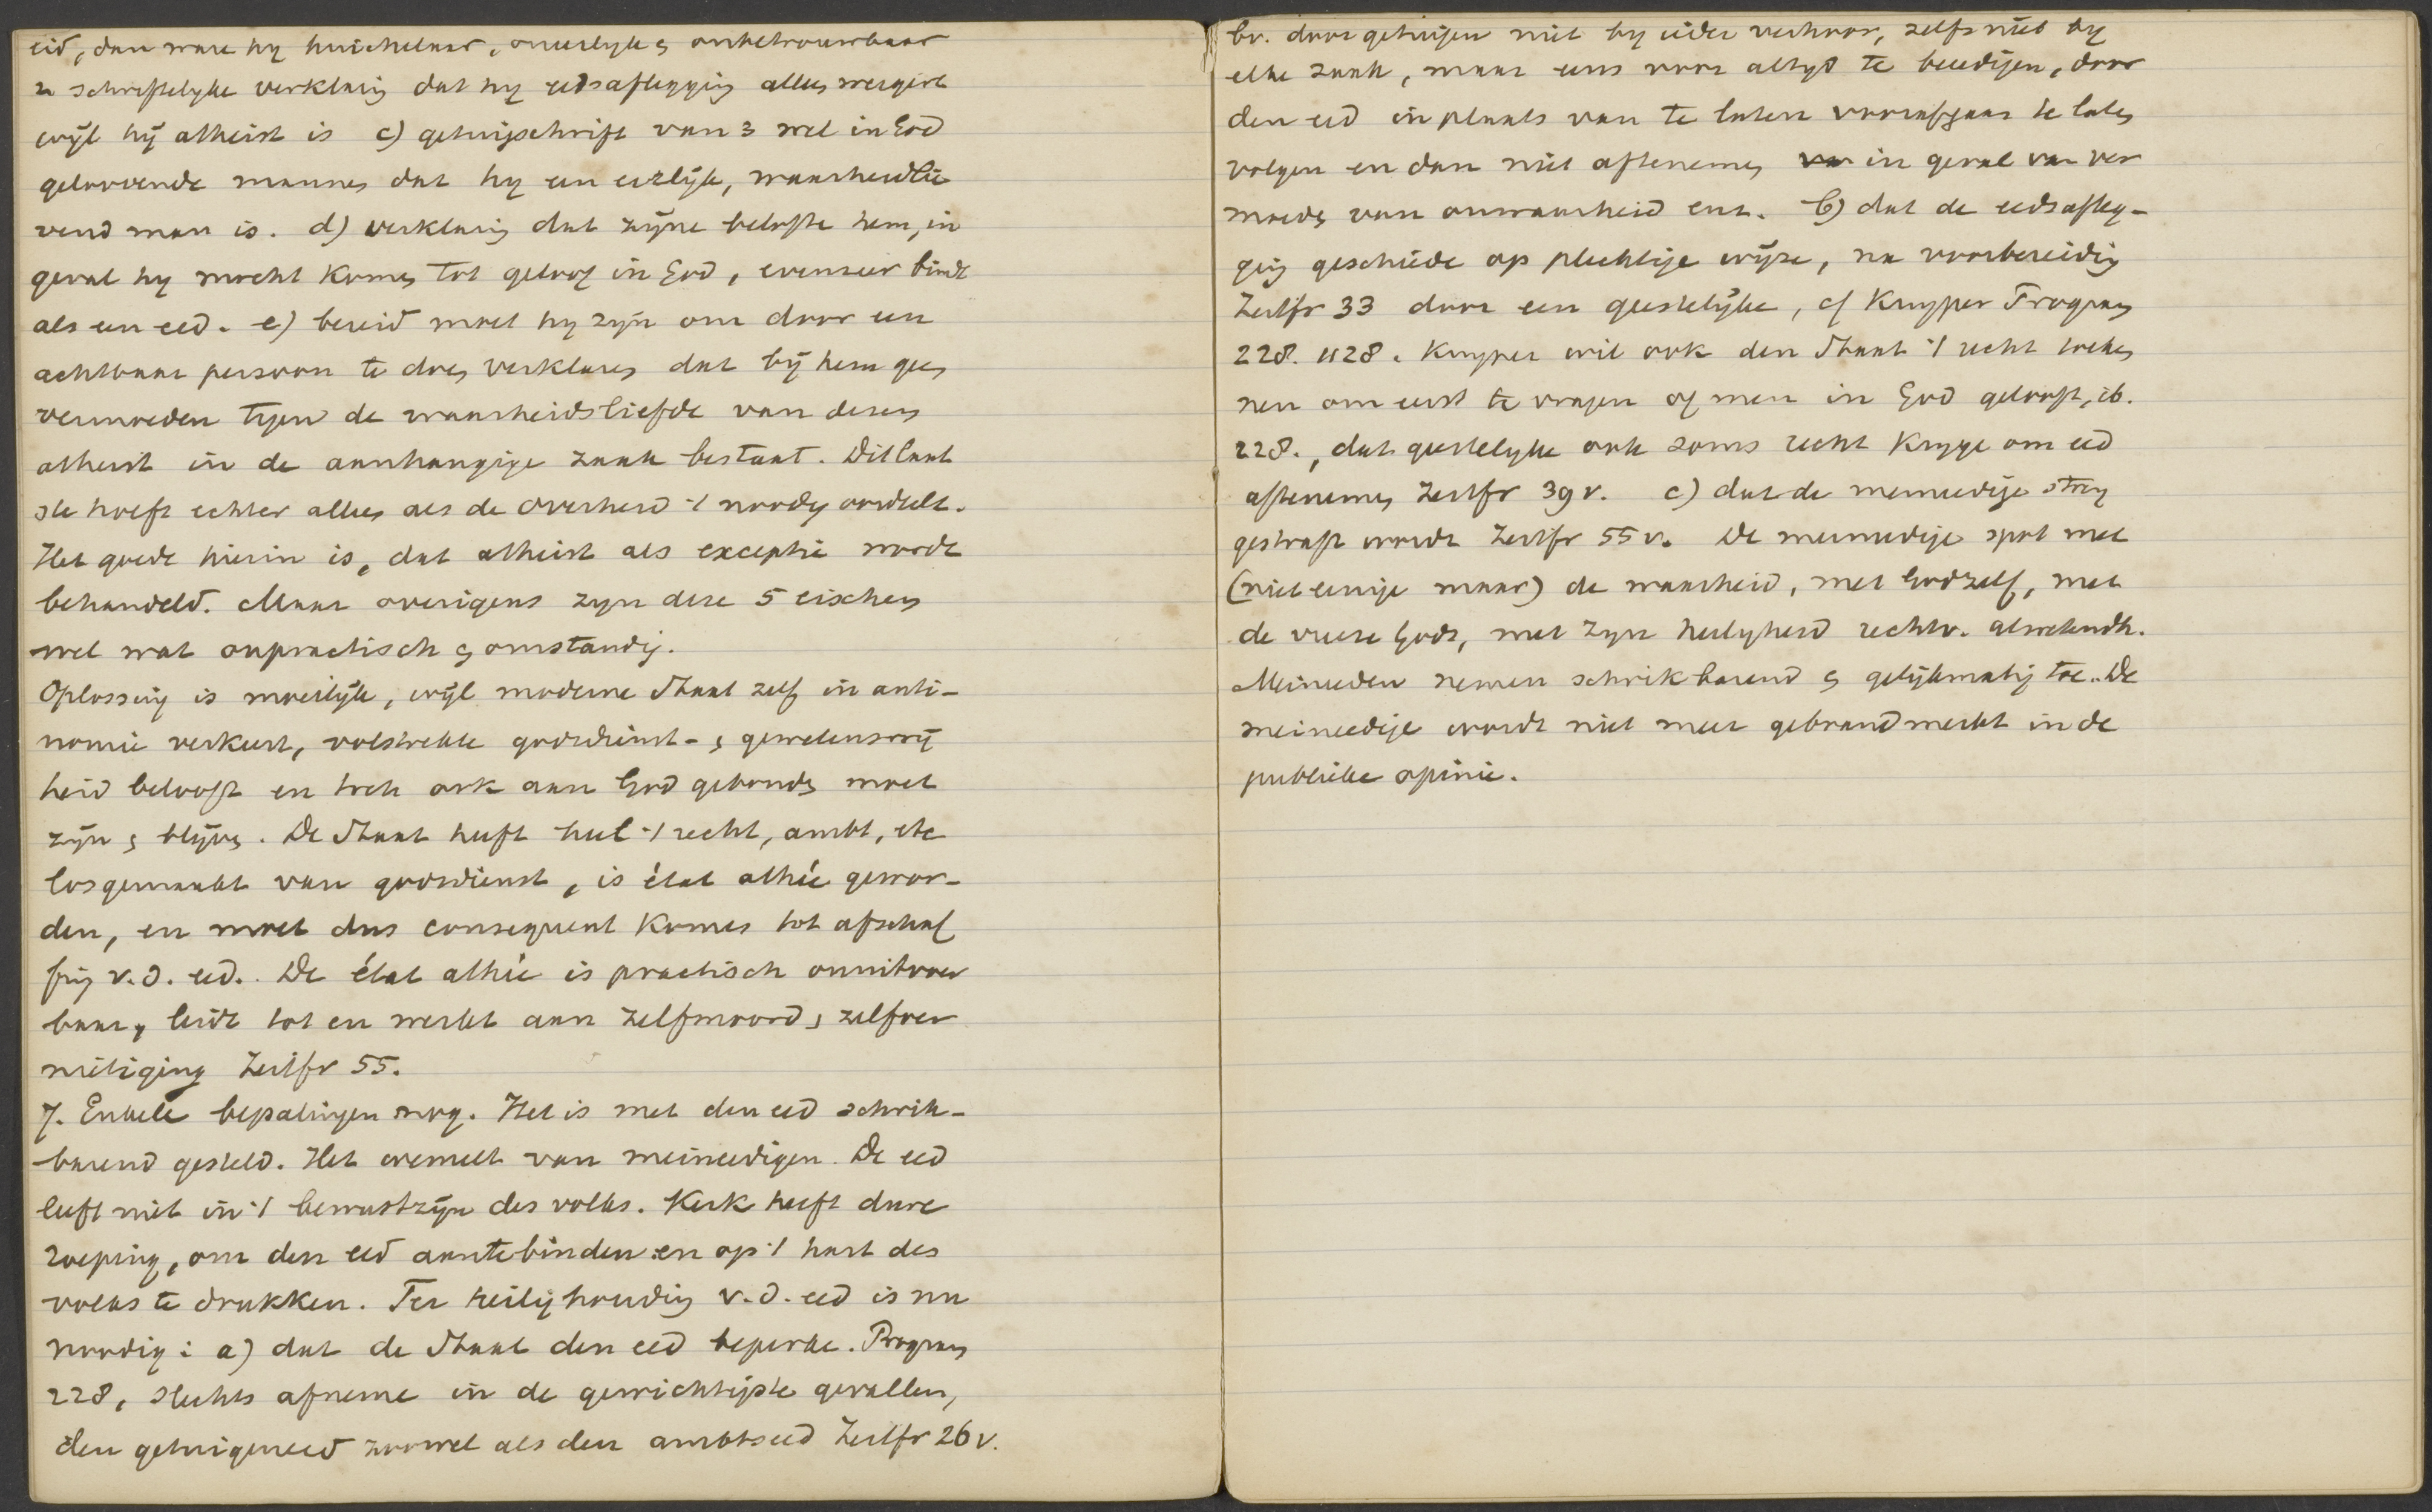 eid, dan ware hy huichelaar, oneerlyk & onbetrouwbaar
schriftelyke verklaring dat hy eedsaflegging alleen weigert
wijl hij atheist is c) getuigschrift van 3 wel in God
geloovende mannen dat hy een eerlijk, waarheidlie
vend man is. d) verklaring dat zijne belofte hem, in
geval hy mocht komen tot geloof in God, evenzeer bindt
als een eed. e) bereid moet hy zijn om door een
achtbaar persoon te doen verklaren dat bij hem geen
vermoeden tegen de waarheidsliefde van dezen
atheist in de aanhangige zaak bestaat. Dit laat
ste hoeft echter alleen als de Overheid 't noodig oordeelt.
Het goede hierin is, dat atheist als exceptie wordt
behandeld. Maar overigens zyn deze 5 eischen
wel wat onpractisch & omstandig.
Oplossing is moeilijk, wijl moderne Staat zelf in anti-
nomie verkeert, volstrekte godsdienst- & gewetensvrij
heid belooft en toch ook aan God gebonden moet
zijn & blijven. De Staat heeft heel 't recht, ambt, etc
losgemaakt van godsdienst, is état athée gewor-
den, en moet dus consequent komen tot afschaf
fing v.d. eed. De état athée is practisch onuitvoer
baar, leidt tot en werkt aan zelfmoord & zelfver
nietiging Zeitfr 55.
7. Enkele bepalingen nog. Het is met den eed schrik-
barend gesteld. Het wemelt van meineedigen. De eed
leeft niet in 't bewustzijn des volks. Kerk heeft dure
roeping, om den eed aantebinden en op 't hart des
volks te drukken. Ter heilighouding v.d. eed is nu
noodig: a) dat de Staat den eed beperke. Program
228, slechts afneme in de gewichtigste gevallen,
den getuigeneed zoowel als den ambtseed Zeitfr 26 v.
bv. door getuigen niet by ieder verhoor, zelfs niet by
elke zaak, maar eens voor altyd te beeedigen, door
den eed in plaats van te laten voorafgaan te laten
volgen en dan niet aftenemen in geval van ver
moeden van onwaarheid enz. b) dat de eedsafleg-
ging geschiede op plechtige wijze, na voorbereiding
Zeitfr 33 door een geestelijke, cf Kuyper Program
228. 1128. Kuyper wil ook den Staat 't recht toeken
nen om eerst te vragen of men in God gelooft, ib.
228., dat geestelyke ook soms recht kryge om eed
aftenemen Zeitfr 39 v. c) dat de meineedige streng
gestraft worde Zeitfr 55 v. De meineedige spot met
(niet eenige maar) de waarheid, met God zelf, met
de vreeze Gods, met zyn heiligheid rechtv. alwetendh.
Meineeden nemen schrikbarend & gelijkmatig toe. De
meineedige wordt niet meer gebrandmerkt in de
publieke opinie.